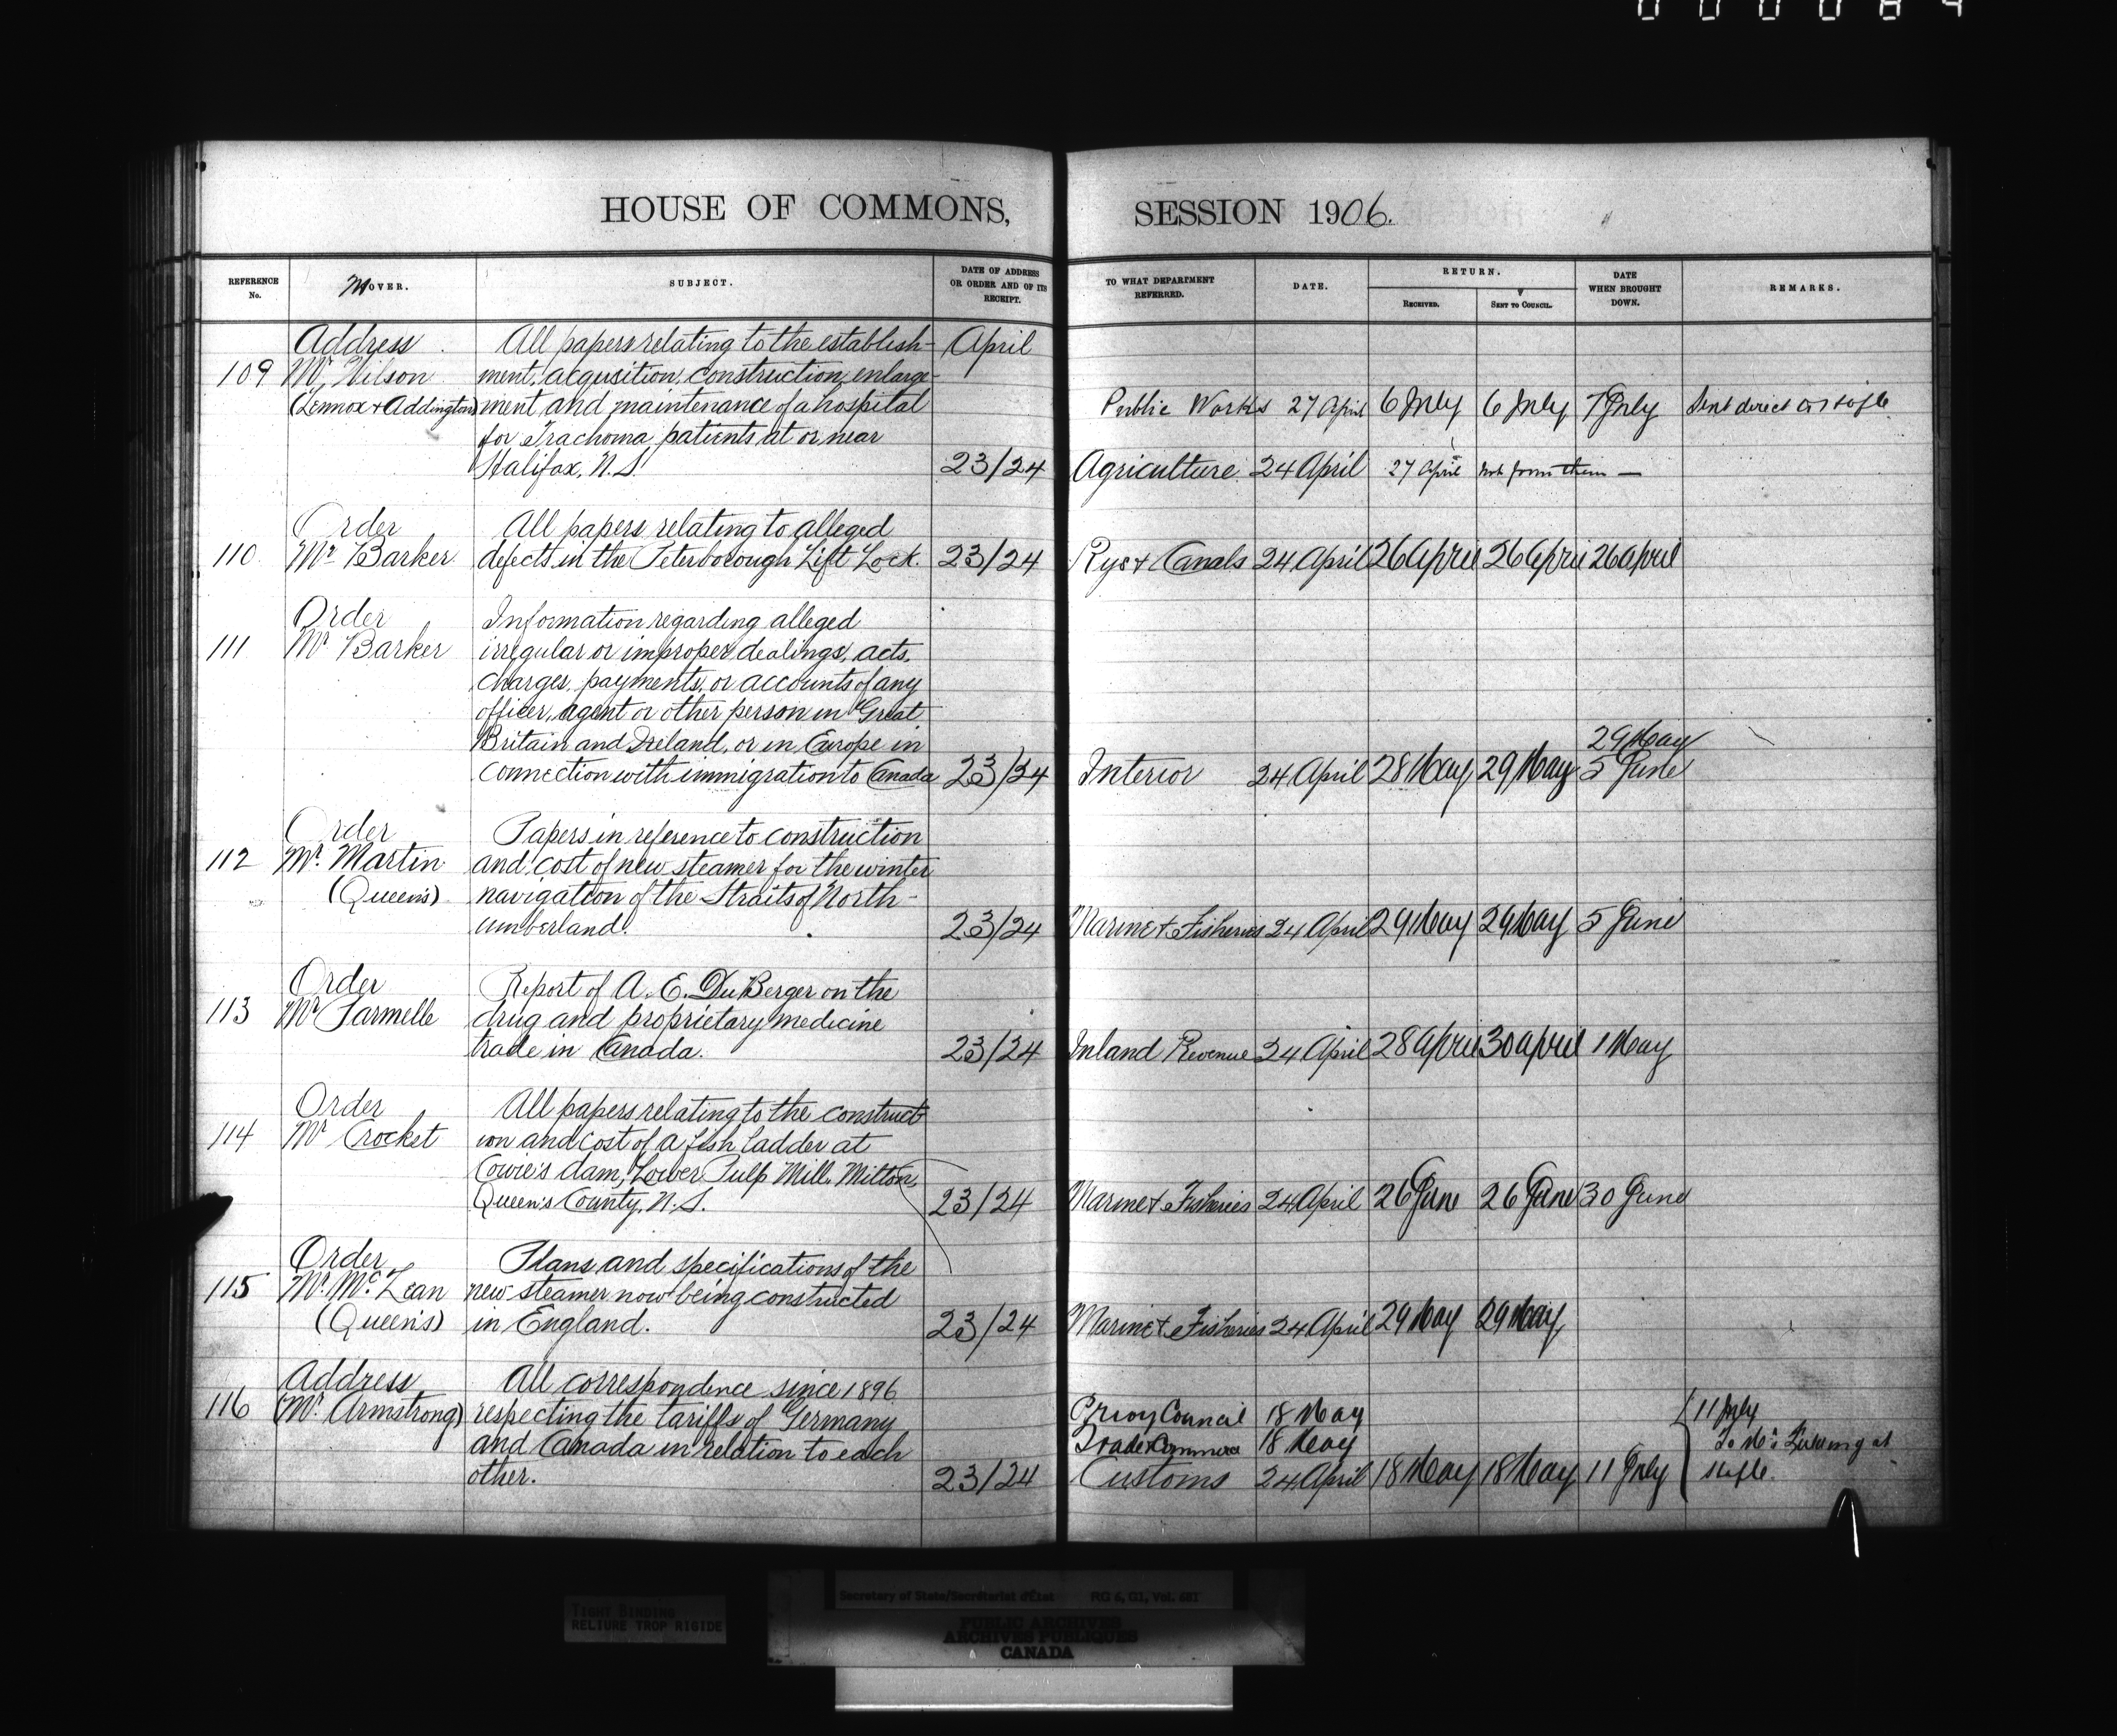 000084
HOUSE OF COMMONS, SESSION 1906.
REFERENCE No. MOVER. SUBJECT. DATE OF ADDRESS OR ORDER AND OF ITS RECEIPT. TO WHAT DEPARTMENT REFERRED. DATE. RETURN. RECEIVED. SENT TO COUNCIL. DATE WHEN BROUGHT DOWN. REMARKS.
Address All papers relating to the establish- April
109 Mr. Wilson ment, acqusition, construction, enlarge-
(Lennox + Addington) ment and maintenance of a hospital Public Works 27 April 6 July 6 July 7 July Sent direct
for Trachoma patients at or near
Halifax, N.S. 23/24 Agriculture 24 April 27 April not from them —
Order All papers relating to alleged
110 Mr. Barker defects in the Peterborough Lift Lock. 23/24 Rys + Canals 24 April 26 April 26 April 26 April
Order Information regarding alleged
111 Mr. Barker irregular or improper dealings, acts,
charges, payments, or accounts of any
officer, agent or other person in Great
Britain and Ireland, or in Europe in 29 May
connection with immigration to Canada 23/24 Interior 24 April 28 May 29 May 5 June
Order Papers in reference to construction
112 Mr. Martin and cost of new steamer for the winter
(Queen's) navigation of the Straits of North-
umberland. 23/24 Marine + Fisheries 24 April 29 May 29 May 5 June
Order Report of A. E. DuBerger on the
113 Mr. Parmelle drug and proprietary medicine
trade in Canada. 23/24 Inland Revenue 24 April 28 April 30 April 1 May
Order All papers relating to the construct-
114 Mr. Crocket ion and cost of a fish ladder at
Cowie's dam, Lower Pulp Mill, Milton,
Queen's County, N.S. 23/24 Marine + Fisheries 24 April 26 June 26 June 30 June
Order Plans and specifications of the
115 Mr. McLean new steamer now being constructed
(Queen's) in England. 23/24 Marine + Fisheries 24 April 29 May 29 May
Address All correspondence since 1896
116 (Mr. Armstrong) respecting the tariffs of Germany Privy Council 18 May 11 July
and Canada in relation to each Trade + Commerce 18 May To Mr. at
other. 23/24 Customs 24 April 18 May 18 May 11 July
Secretary of State/Secrétariat d'État RG 6, G1, Vol. 681
TIGHT BINDING
RELIURE TROP RIGIDE
PUBLIC ARCHIVES
ARCHIVES PUBLIQUES
CANADA